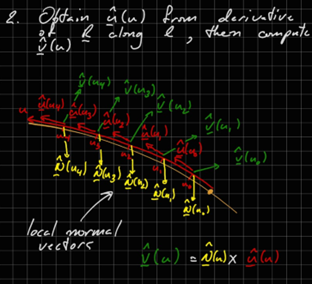 2. Obtain û(u) from derivative
of R along l, then compute
v̂(u)
v̂(u₄) v̂(u₃)
v̂(u₂)
u û(u₄) û(u₃) û(u₂) û(u₁) v̂(u₁)
û(u₀) v̂(u₀)
u₄ u₃ u₂ u₁ u₀
N̂(u₄) N̂(u₃) N̂(u₂) N̂(u₁) N̂(u₀)
local normal
vectors
v̂(u) = N̂(u) × û(u)